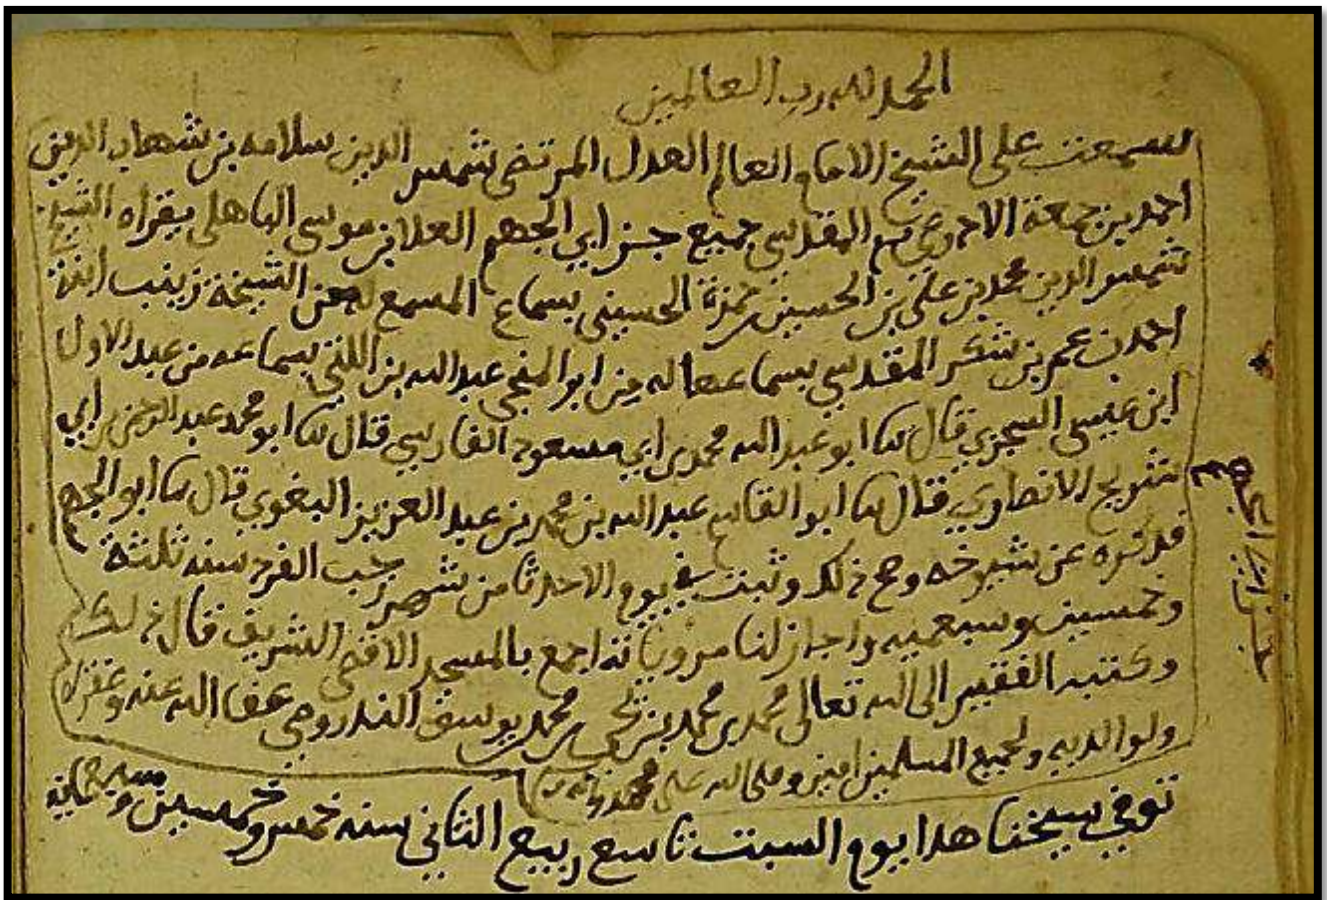 الحمد لله رب العالمين
سمعت على الشيخ الامام العالم العدل المرتضى شمس الدين سلامه بن شهاب الدين
احمد بن جمعة المقدسي جميع جزء ابي الجهم العلا بن موسى الباهلي بقراه الشيخ
شمس الدين محمد بن علي بن الحسين بن حمزة الحسيني بسماع المسمع له من الشيخة زينب ابنة
احمد بن عمر بن شكر المقدسي بسماعها له من ابو المنجى عبد الله بن اللتي بسماعه من عبد الاول
ابن عيسى السجزي قال ثنا ابو عبد الله محمد بن ابي مسعود الفارسي قال ثنا ابو محمد عبد الرحمن بن ابي
شريح الانصاري قال ثنا ابو القاسم عبد الله بن محمد بن عبد العزيز البغوي قال ثنا ابو الجهم
فذكره عن شيوخه وصح ذلك وثبت في يوم الاحد ثامن شهر رجب الفرد سنه ثلثة
وخمسين وسبعميه واجاز لنا مروياته اجمع بالمسجد الاقصى الشريف قال ذلك
وكتبه الفقير الى الله تعالى محمد بن محمد بن يحيى بن محمد بن يوسف الندرومي عفا الله عنه وغفر له
ولوالديه ولجميع المسلمين امين وصلى الله على محمد
توفي شيخنا هدا يوم السبت تاسع ربيع الثاني سنه خمس وخمسين وسبعمائه
جزء ابي الجهم